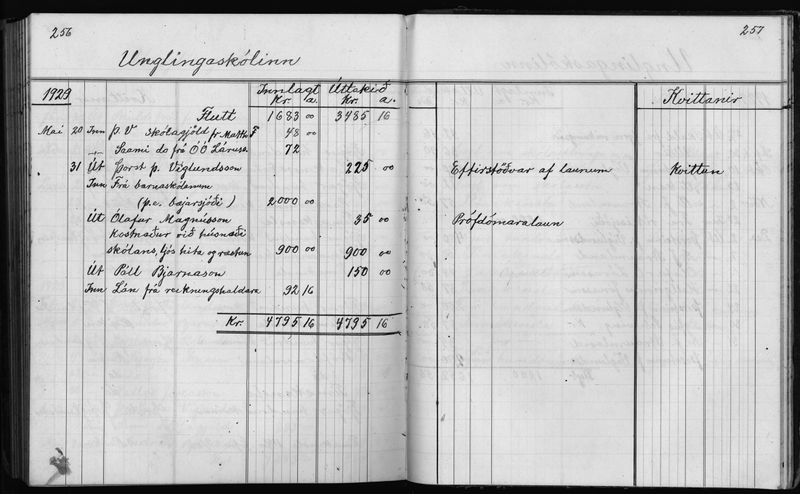 256
257
Unglingaskólinn
1929 Innlagt Úttekið Kvittanir
Kr. a. Kr. a.
Flutt 1683 00 3485 16
Maí 20 Inn p. V skólagjöld fr Matth. F 48 00
Sami do frá ÓÓ Láruss. 72
31 Út Þorst þ. Víglundsson 225 00 Eftirstöðvar af launum Kvittun
Inn Frá barnaskólanum
(p.e. bæjarsjóði) 2000 00
Út Ólafur Magnússon 35 00 Prófdómaralaun
Kostnaður við húsnæði
skólans, ljós hita og ræstun 900 00 900 00
Út Páll Bjarnason 150 00
Inn Lán frá reikningshaldara 92 16
Kr. 4795 16 4795 16